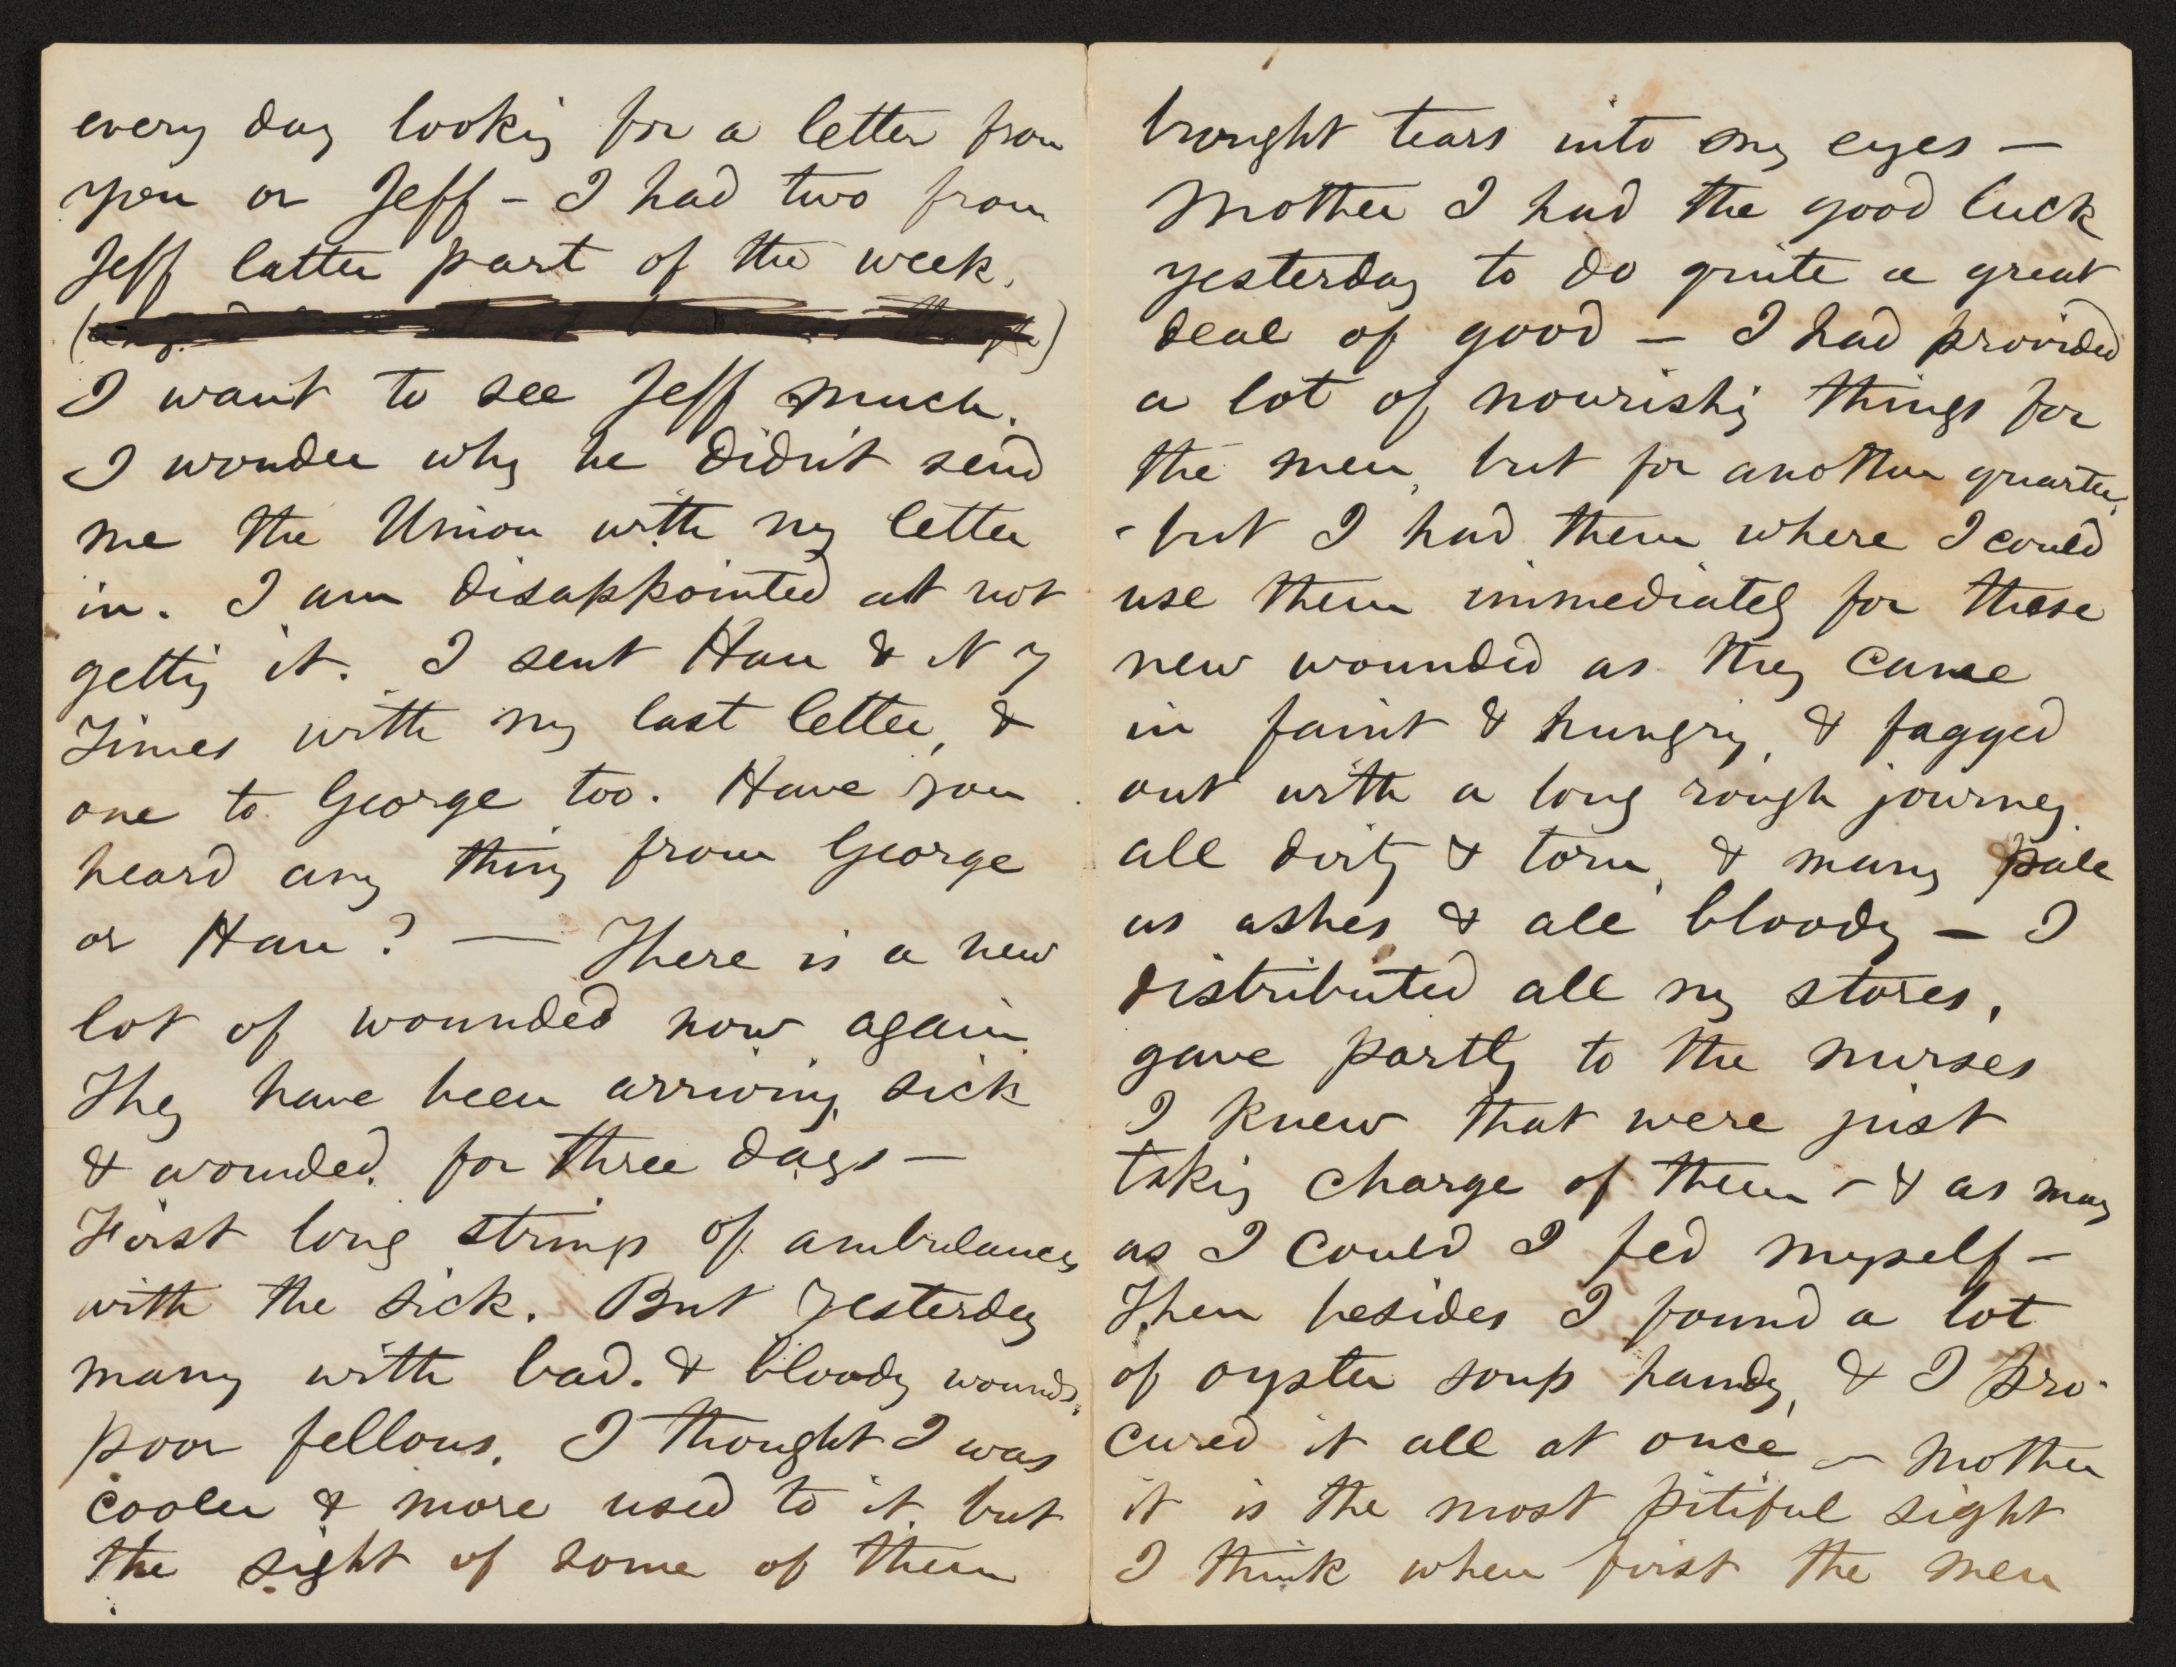 every day looking for a letter from
you or Jeff – I had two from
Jeff latter part of the week.
I want to see Jeff much.
I wonder why he didn't send
me the Union with my letter
in. I am disappointed at not
getting it. I sent Han a N Y
Times with my last letter, &
one to George too. Have you
heard any thing from George
or Han? — There is a new
lot of wounded now again.
They have been arriving, sick
& wounded, for three days –
First long strings of ambulances
with the sick. But yesterday
many with bad. & bloody wounds,
poor fellows. I thought I was
cooler & more used to it, but
the sight of some of them
brought tears into my eyes –
Mother I had the good luck
yesterday to do quite a great
deal of good – I had provided
a lot of nourishing things for
the men, but for another quarter,
– but I had them where I could
use them immediately for these
new wounded as they came
in faint & hungry, & fagged
out with a long rough journey,
all dirty & torn, & many pale
as ashes, & all bloody – I
distributed all my stores,
gave partly to the nurses
I knew that were just
taking charge of them – & as many
as I could I fed myself –
Then besides I found a lot
of oyster soup handy, & I pro-
cured it all at once – Mother
it is the most pitiful sight
I think when first the men